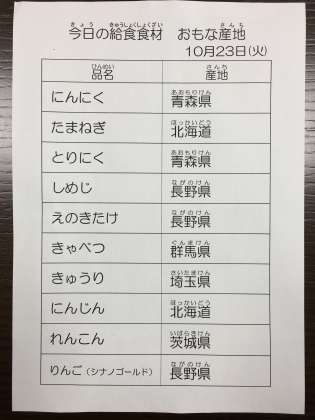 今日の給食食材 おもな産地
10月23日(火)
品名 産地
にんにく 青森県
たまねぎ 北海道
とりにく 青森県
しめじ 長野県
えのきたけ 長野県
きゃべつ 群馬県
きゅうり 埼玉県
にんじん 北海道
れんこん 茨城県
りんご(シナノゴールド) 長野県